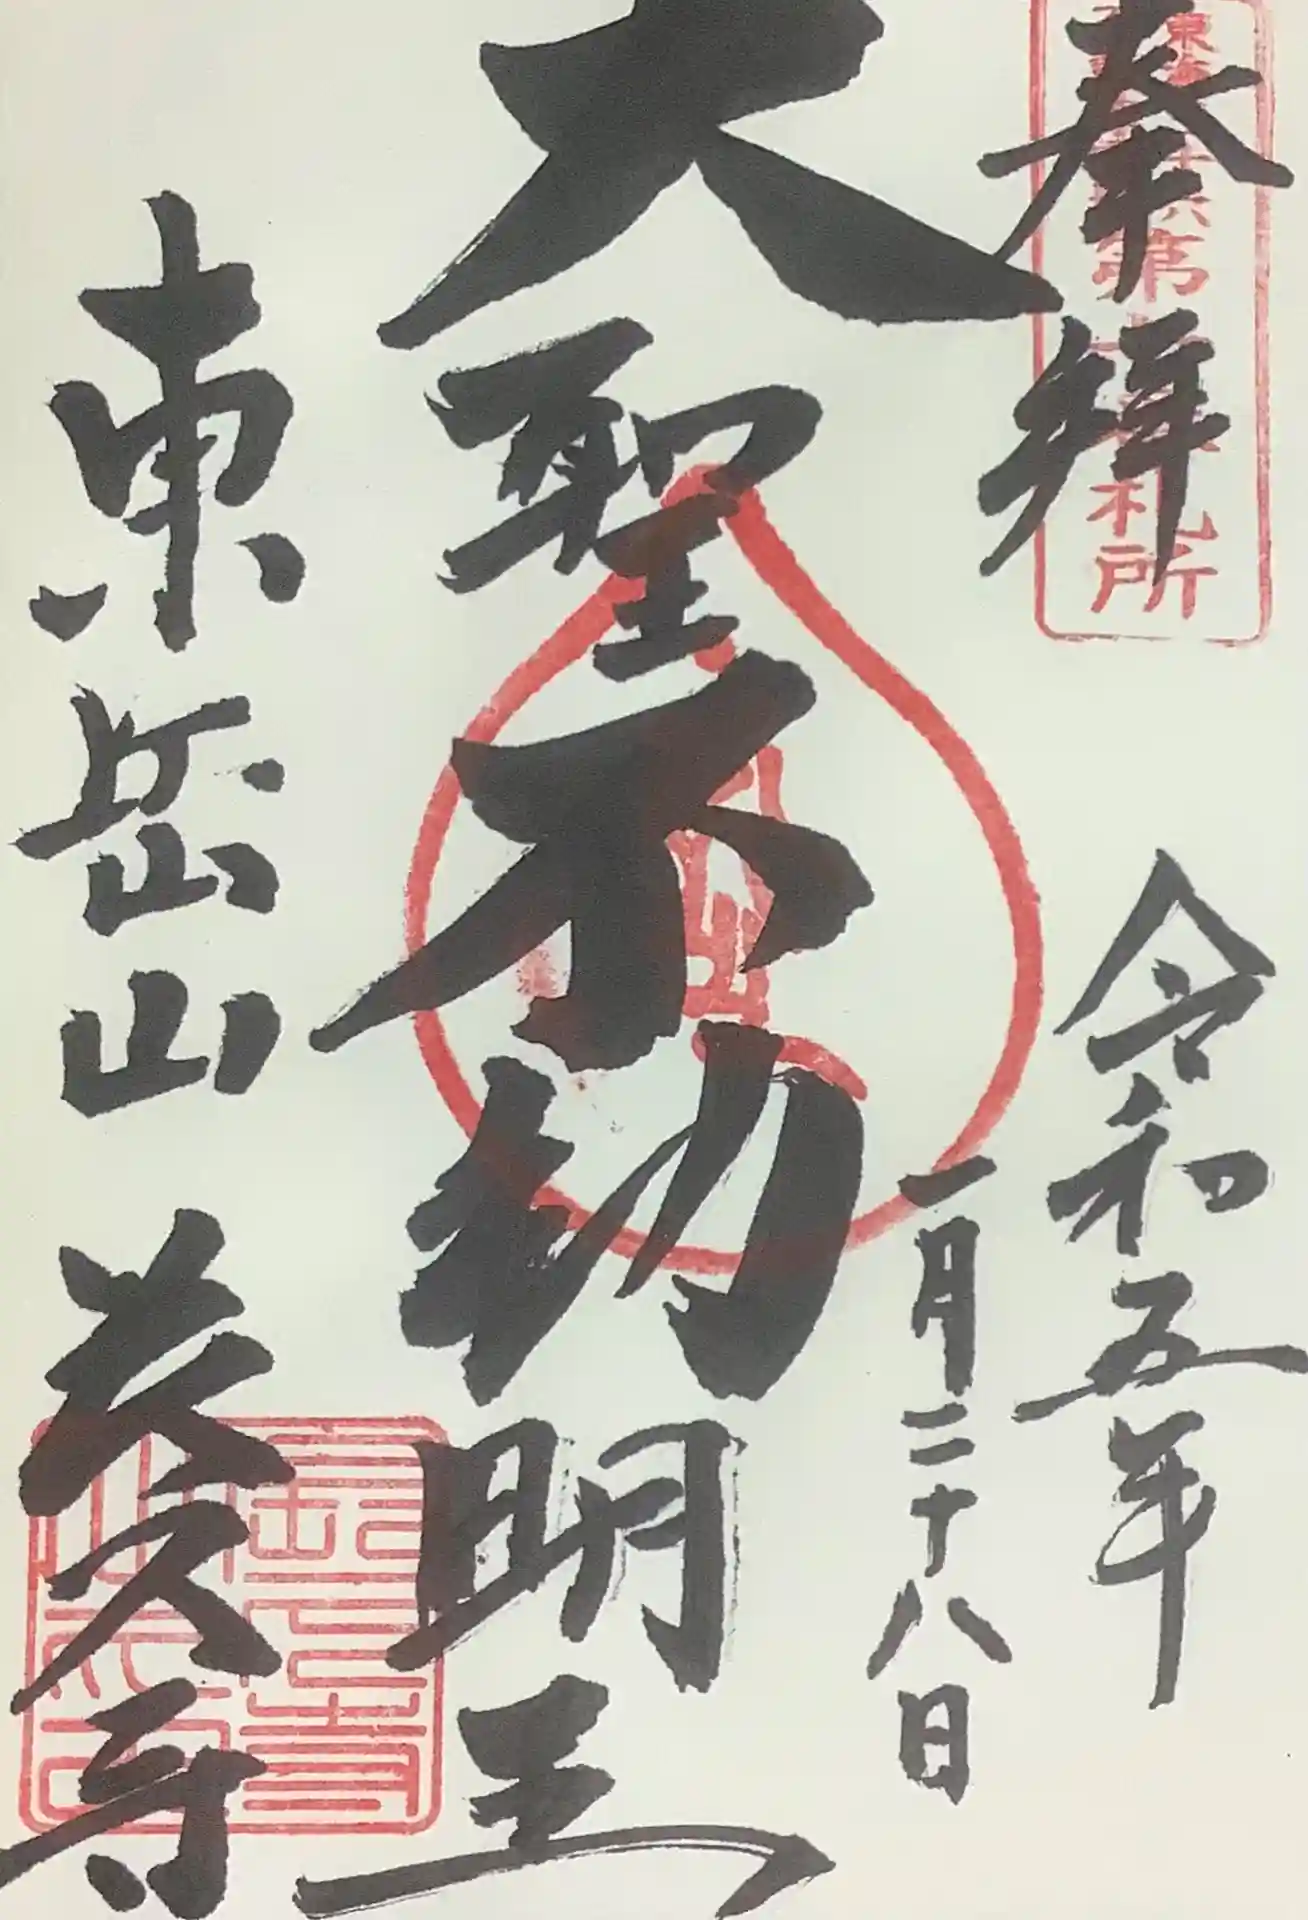 奉拝
第
札所
令和五年
一月二十八日
大聖不動明王
東岳山 長久寺